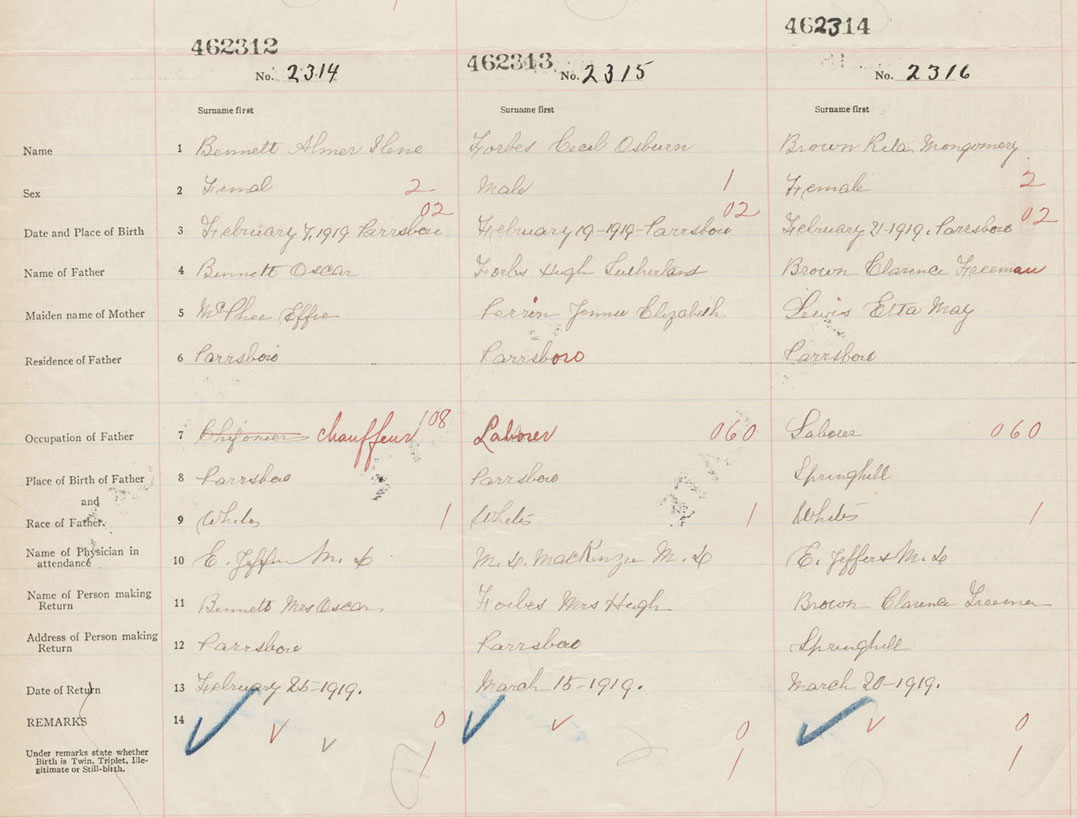 462312 462313 462314
No. 2314 No. 2315 No. 2316
Surname first Surname first Surname first
Name 1 Bennett Almer Ilene Forbes Cecil Osburn Brown Rita Mongomery
Sex 2 Femal 2 Male 1 Female 2
02 02 02
Date and Place of Birth 3 February 7, 1919 Parrsboro February 19-1919-Parrsboro February 21-1919. Parrsboro
Name of Father 4 Bennett Oscar Forbs Hugh Sutherland Brown Clarence Freeman
Maiden name of Mother 5 McPhee Effie Perrin Jennie Elizabeth Lewis Etta May
Residence of Father 6 Parrsboro Parrsboro Parrsboro
Occupation of Father 7 chauffeur 108 Laborer 060 Laborer 060
Place of Birth of Father 8 Parrsboro Parrsboro Springhill
and
Race of Father. 9 White 1 White 1 White 1
Name of Physician in
attendance 10 E. Jeffers M. D M. D. MacKenzie M. D E. Jeffers M. D
Name of Person making
Return 11 Bennett Mrs Oscar. Forbes Mrs Hugh Brown Clarence Freeman
Address of Person making
Return 12 Parrsboro Parrsboro Springhill
Date of Return 13 February 25-1919. March 15-1919. March 20-1919.
REMARKS 14 0 0 0
Under remarks state whether
Birth is Twin, Triplet, Ille-
gitimate or Still-birth. 1 1 1